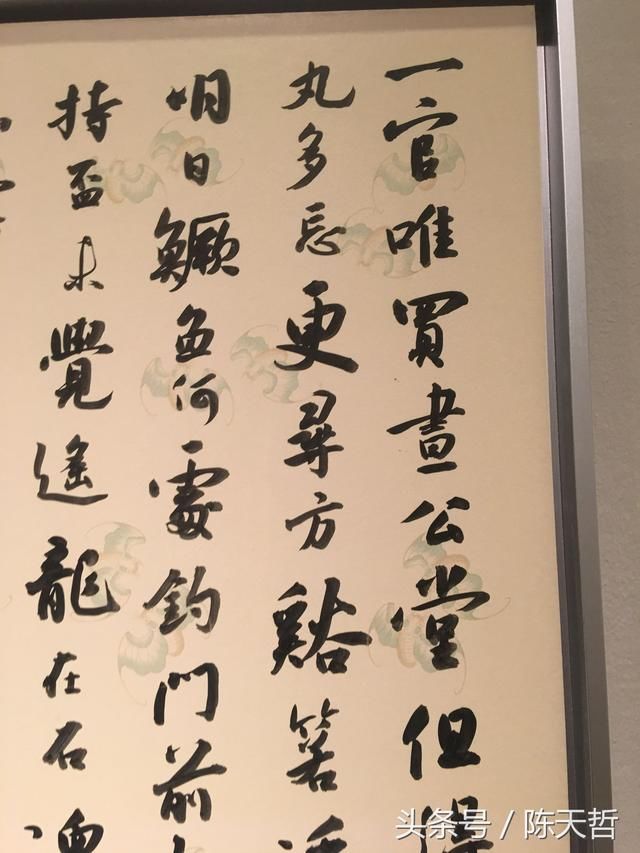 一官唯買畫公堂但
丸多忘更尋方谿箬
明日鱖魚何處釣門前
持盃未覺遙龍在石
头条号 / 陈天哲